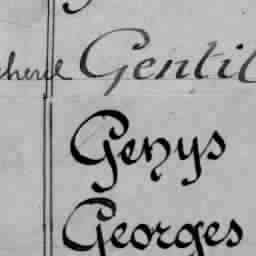 Gentil
Genys
Georges